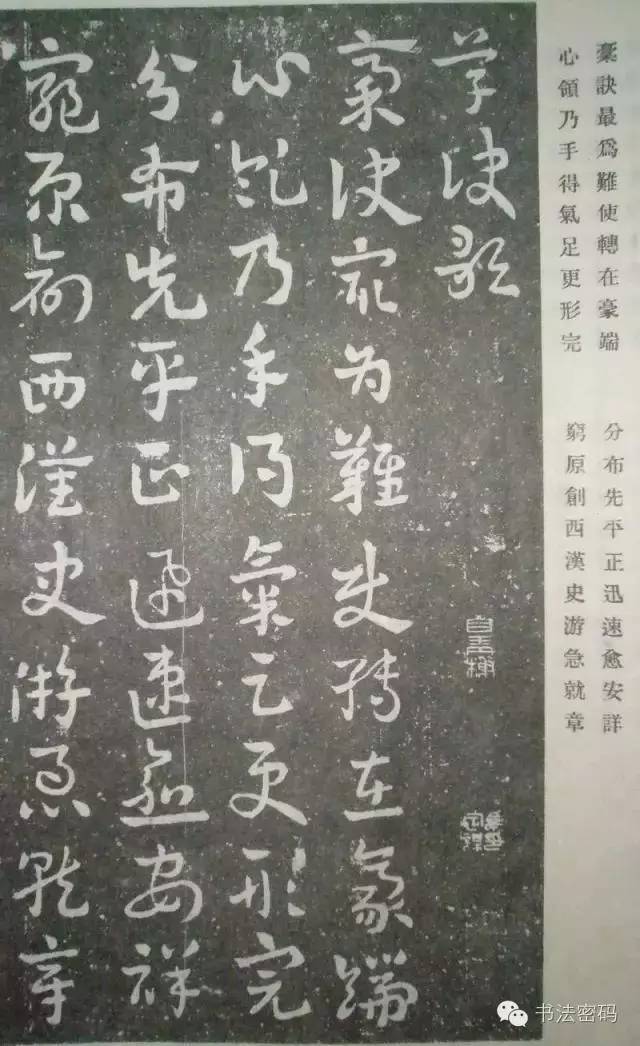 稾訣最爲難使轉在豪端
心領乃手得氣足更形完
分布先平正迅速愈安詳
窮原創西漢史游急就章
草訣歌
稾訣最爲難使轉在豪端
心領乃手得氣足更形完
分布先平正迅速愈安祥
窮原創西漢史游急就章
书法密码